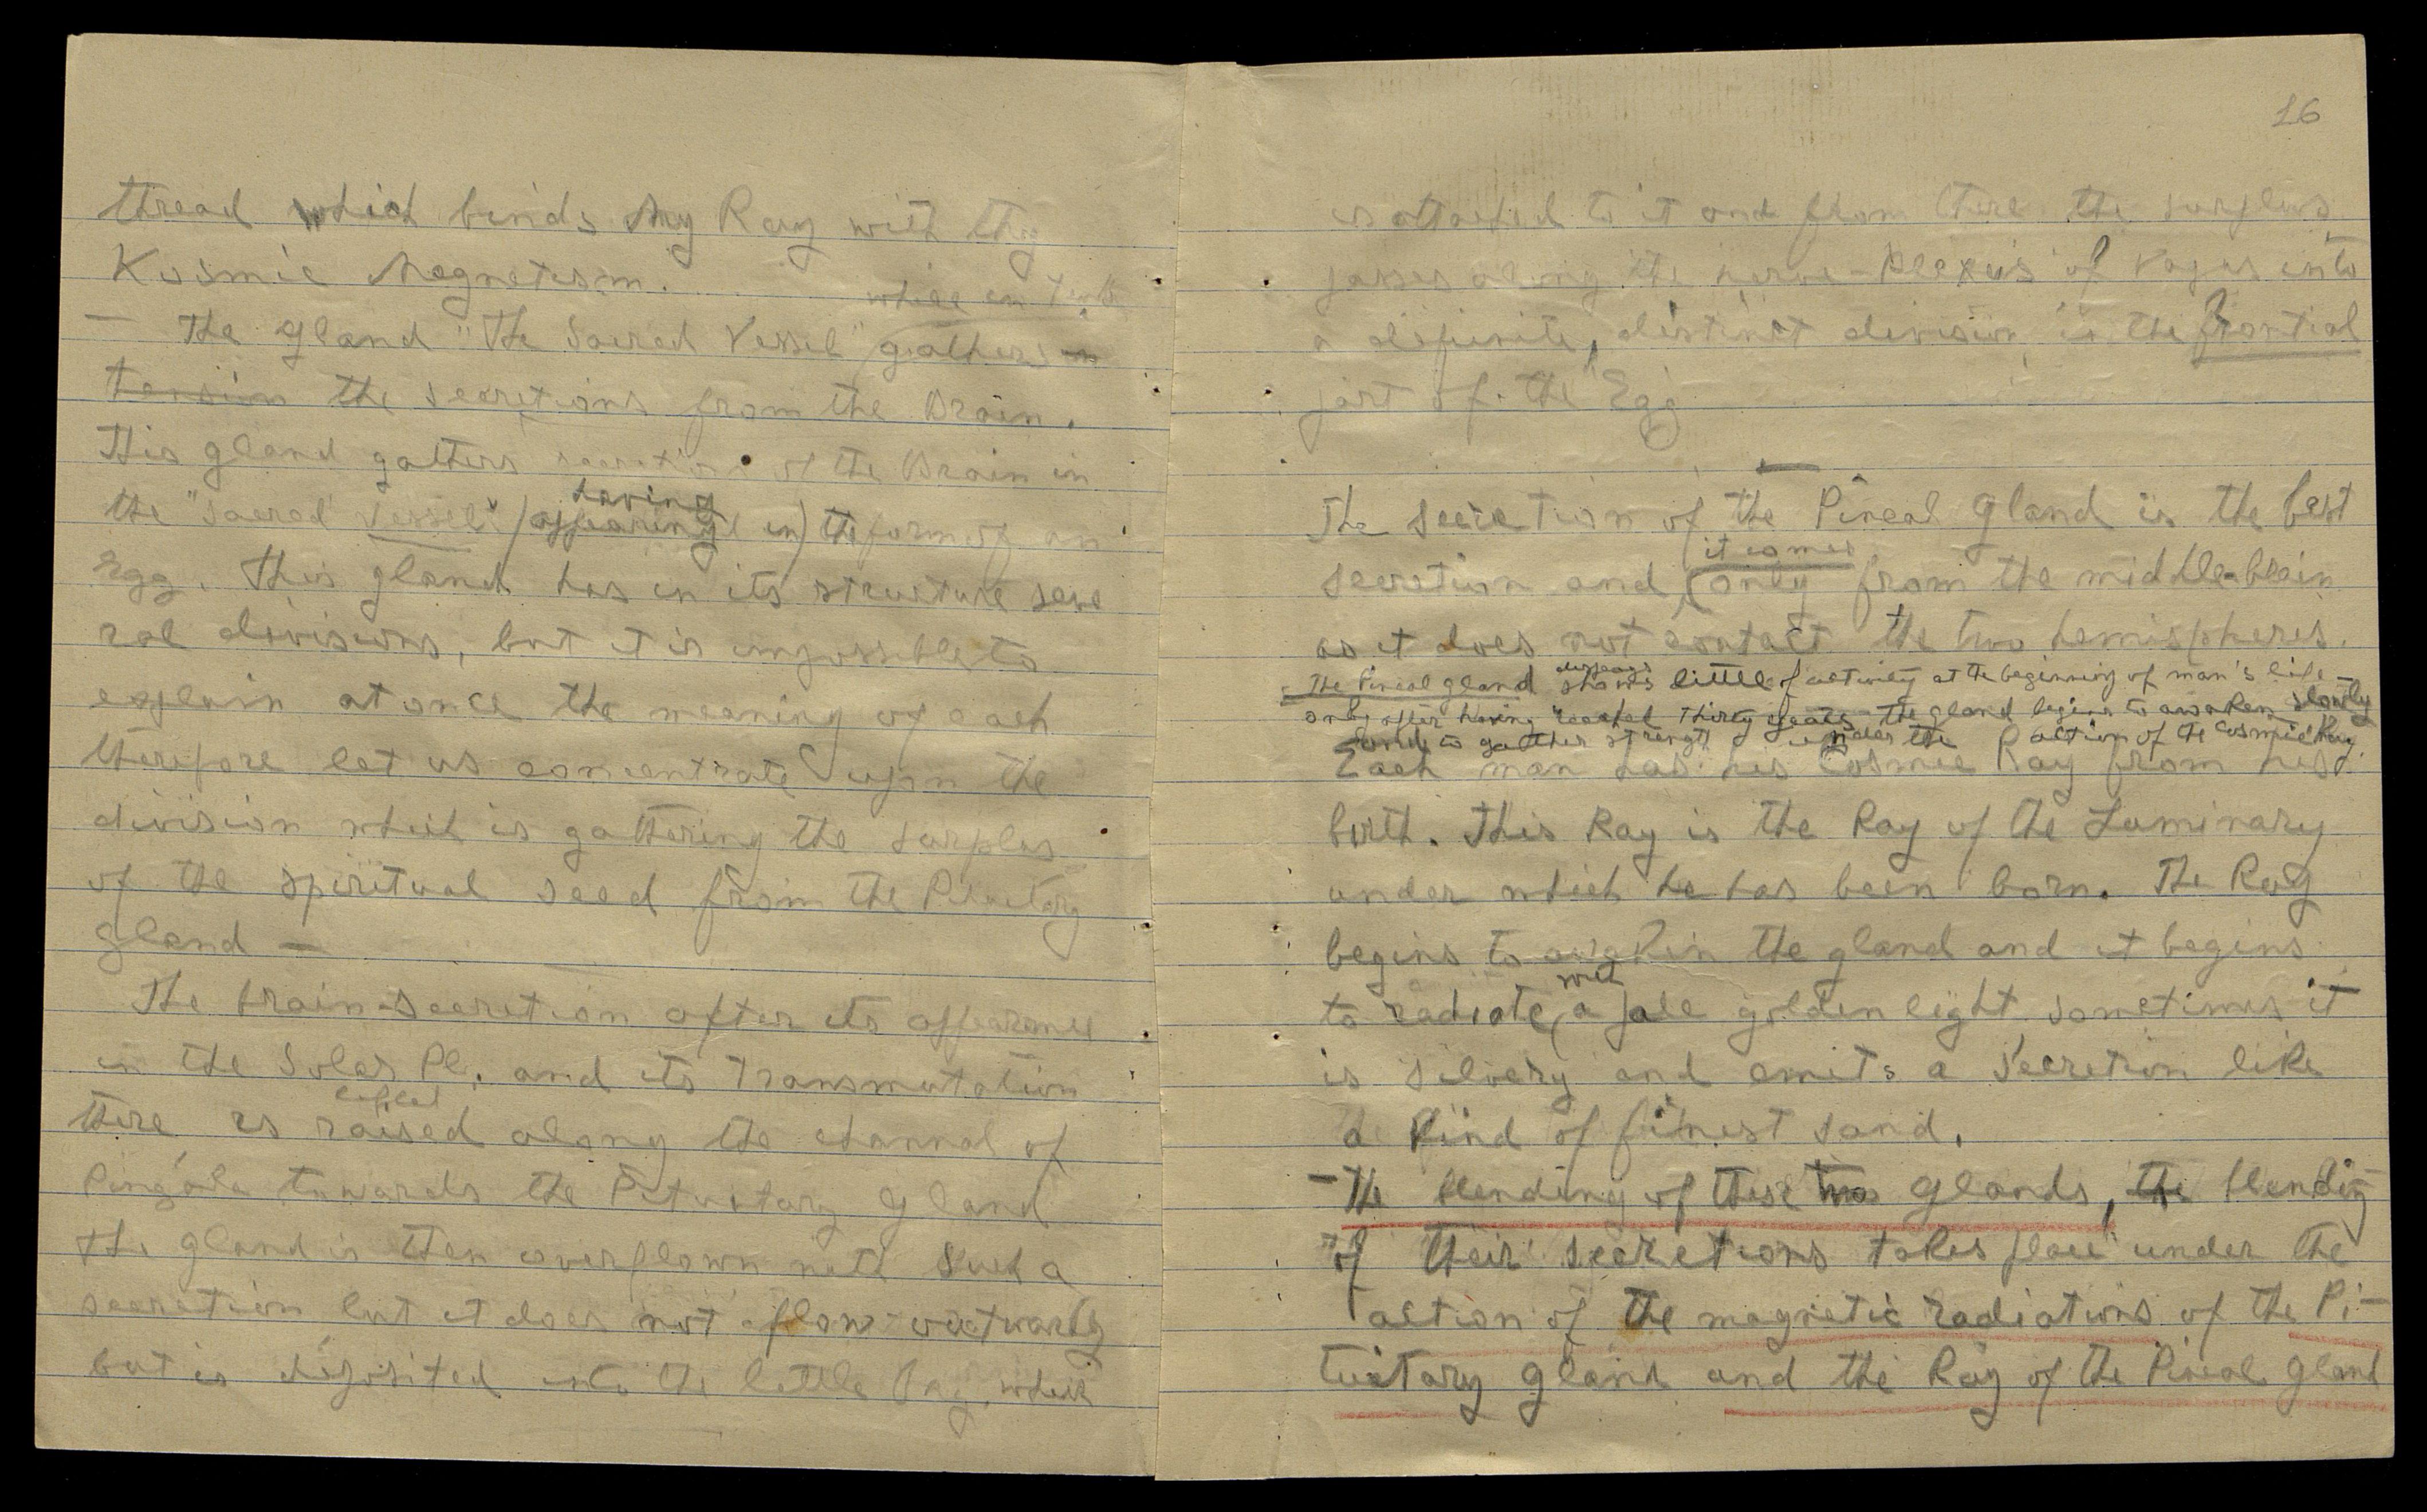 thread which binds My Ray with thy
Kosmic Magnetism.
where in
— The gland "The Sacred Vessel" gathers in
tension the secretions from the Brain.
This gland gathers secretions of the Brain in
having
the "Sacred Vessel" (appearing in) the form of an
Egg. This gland has in its structure seve
ral divisions, but it is impossible to
explain at once the meaning of each
therefore let us concentrate upon the
division which is gathering the surplus
of the spiritual seed from the Pituitary
gland —
The brain-secretion after its appearance
in the Solar Pl. and its Transmutation
lifted
there, is raised along the channal of
Pingala towards the Pituitary gland
The gland is then overflown with such a
secretion but it does not flow outwardly
but is deposited into the little bag, which
16
is attached to it and from there the surplus
passes along the nerve-Plexus of Vagus into
a definite, distinct division in the frontial
part of the Egg
—
The secretion of the Pineal gland is the best
it comes
secretion and (only from the middle-brain
as it does not contact the two hemispheres.
displays
The Pineal gland shows little of activity at the beginning of man's life
only after having reached thirty years the gland begins to awaken slowly
and to gather strength under the action of the Cosmic Ray.
Each man has his Cosmic Ray from his
birth. This Ray is the Ray of the Luminary
under which he has been born. The Ray
begins to awakin the gland and it begins
with
to radiate, a pale golden light sometimes it
is silvery and emits a secretion like
a kind of finest sand.
— The blending of these two glands, the blending
of their secretions takes place under the
action of the magnetic radiations of the Pi-
tuitary gland and the Ray of the Pineal gland